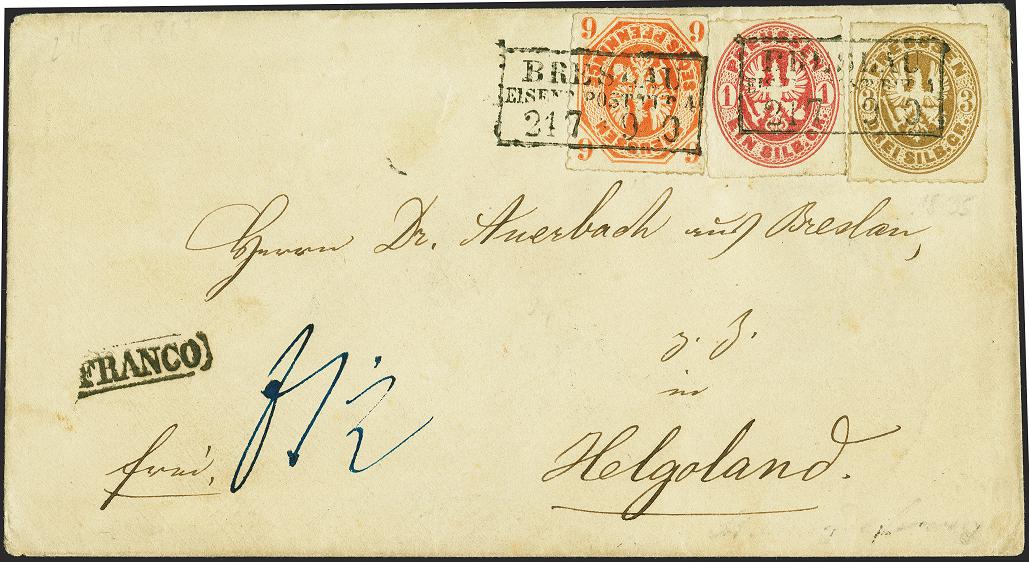 9 9
9 9
PREUSSEN
1 1
EIN SILB.GR.
PREUSSEN
3 3
DREI SILB.GR.
BRESLAU
EISENB. POST EXP.
21 7 9
BRESLAU
21 7 9
Herrn Dr. Auerbach aus Breslau,
z. Z.
in
Helgoland.
FRANCO
frei.